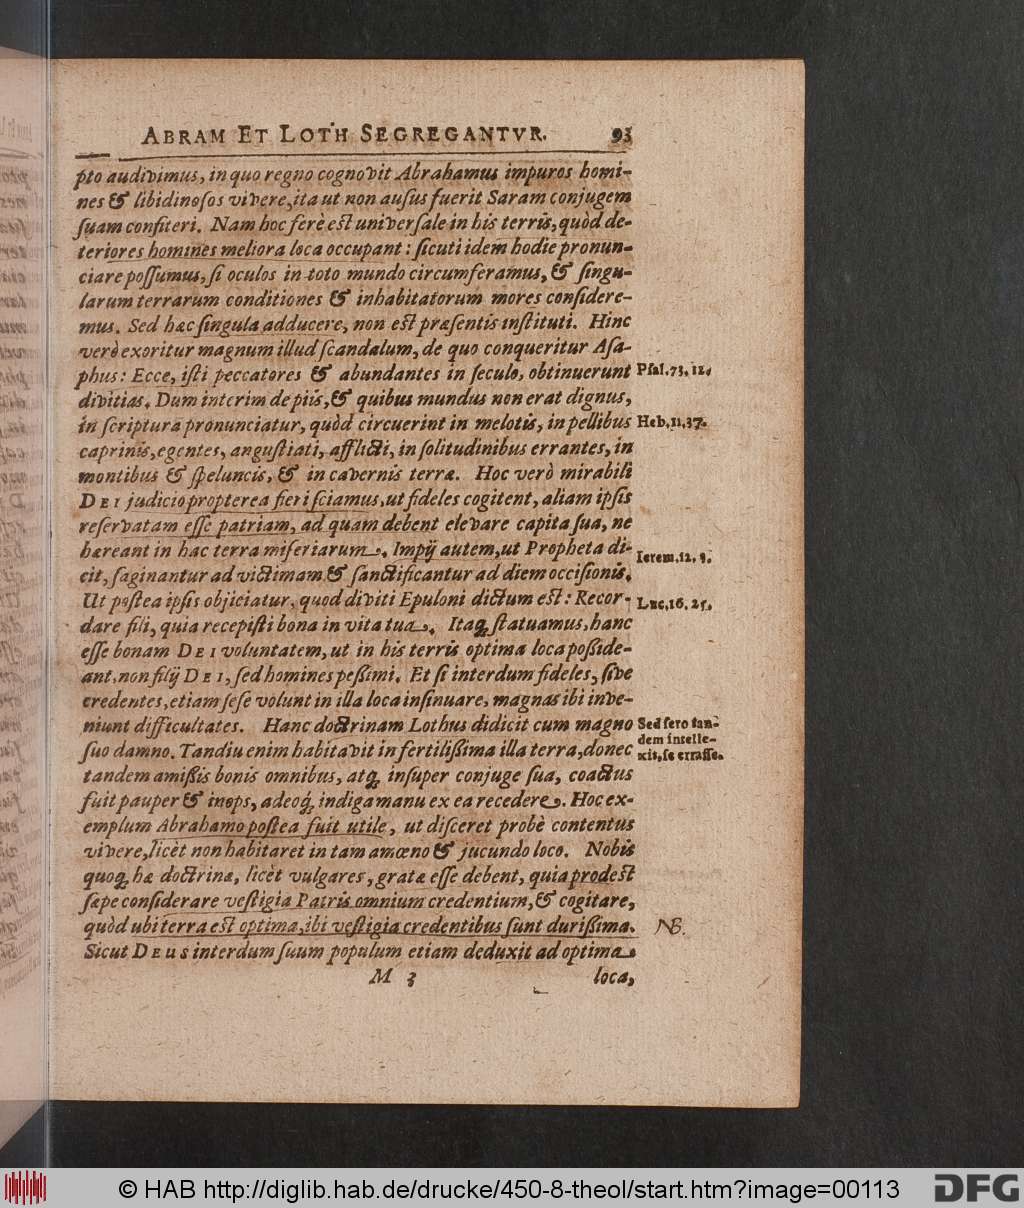 ABRAM ET LOTH SEGREGANTVR. 93
pto audivimus, in quo regno cognovit Abrahamus impuros homi-
nes & libidinosos vivere, ita ut non ausus fuerit Saram conjugem
suam confiteri. Nam hoc ferè est universale in his terris, quòd de-
teriores homines meliora loca occupant: sicuti idem hodie pronun-
ciare possumus, si oculos in toto mundo circumferamus, & singu-
larum terrarum conditiones & inhabitatorum mores considere-
mus. Sed hæc singula adducere, non est præsentis instituti. Hinc
verò exoritur magnum illud scandalum, de quo conqueritur Asa-
phus: Ecce, isti peccatores & abundantes in seculo, obtinuerunt
Psal. 73. 12.
divitias. Dum interim de piis, & quibus mundus non erat dignus,
in scriptura pronunciatur, quòd circuerint in melotis, in pellibus
Heb. 11. 37.
caprinis, egentes, angustiati, afflicti, in solitudinibus errantes, in
montibus & speluncis, & in cavernis terræ. Hoc verò mirabili
DEI judicio propterea fieri sciamus, ut fideles cogitent, aliam ipsis
reservatam esse patriam, ad quam debent elevare capita sua, ne
hæreant in hac terra miseriarum. Impij autem, ut Propheta di-
Ierem. 12. 3.
cit, saginantur ad victimam & sanctificantur ad diem occisionis.
Ut postea ipsis objiciatur, quod diviti Epuloni dictum est: Recor-
Luc. 16. 25.
dare fili, quia recepisti bona in vita tua. Itaq; statuamus, hanc
esse bonam DEI voluntatem, ut in his terris optima loca posside-
ant, non filij DEI, sed homines pessimi. Et si interdum fideles, sive
credentes, etiam sese volunt in illa loca insinuare, magnas ibi inve-
niunt difficultates. Hanc doctrinam Lothus didicit cum magno
Sed sero tan-
dem intelle-
xit, se errasse.
suo damno. Tandiu enim habitavit in fertilissima illa terra, donec
tandem amissis bonis omnibus, atq; insuper conjuge sua, coactus
fuit pauper & inops, adeoq; indiga manu ex ea recedere. Hoc ex-
emplum Abrahamo postea fuit utile, ut disceret probè contentus
vivere, licèt non habitaret in tam amœno & jucundo loco. Nobis
quoq; hæ doctrinæ, licèt vulgares, gratæ esse debent, quia prodest
sæpe considerare vestigia Patris omnium credentium, & cogitare,
quòd ubi terra est optima, ibi vestigia credentibus sunt durissima.
NB.
Sicut DEUS interdum suum populum etiam deduxit ad optima
M 3 loca,
© HAB http://diglib.hab.de/drucke/450-8-theol/start.htm?image=00113
DFG